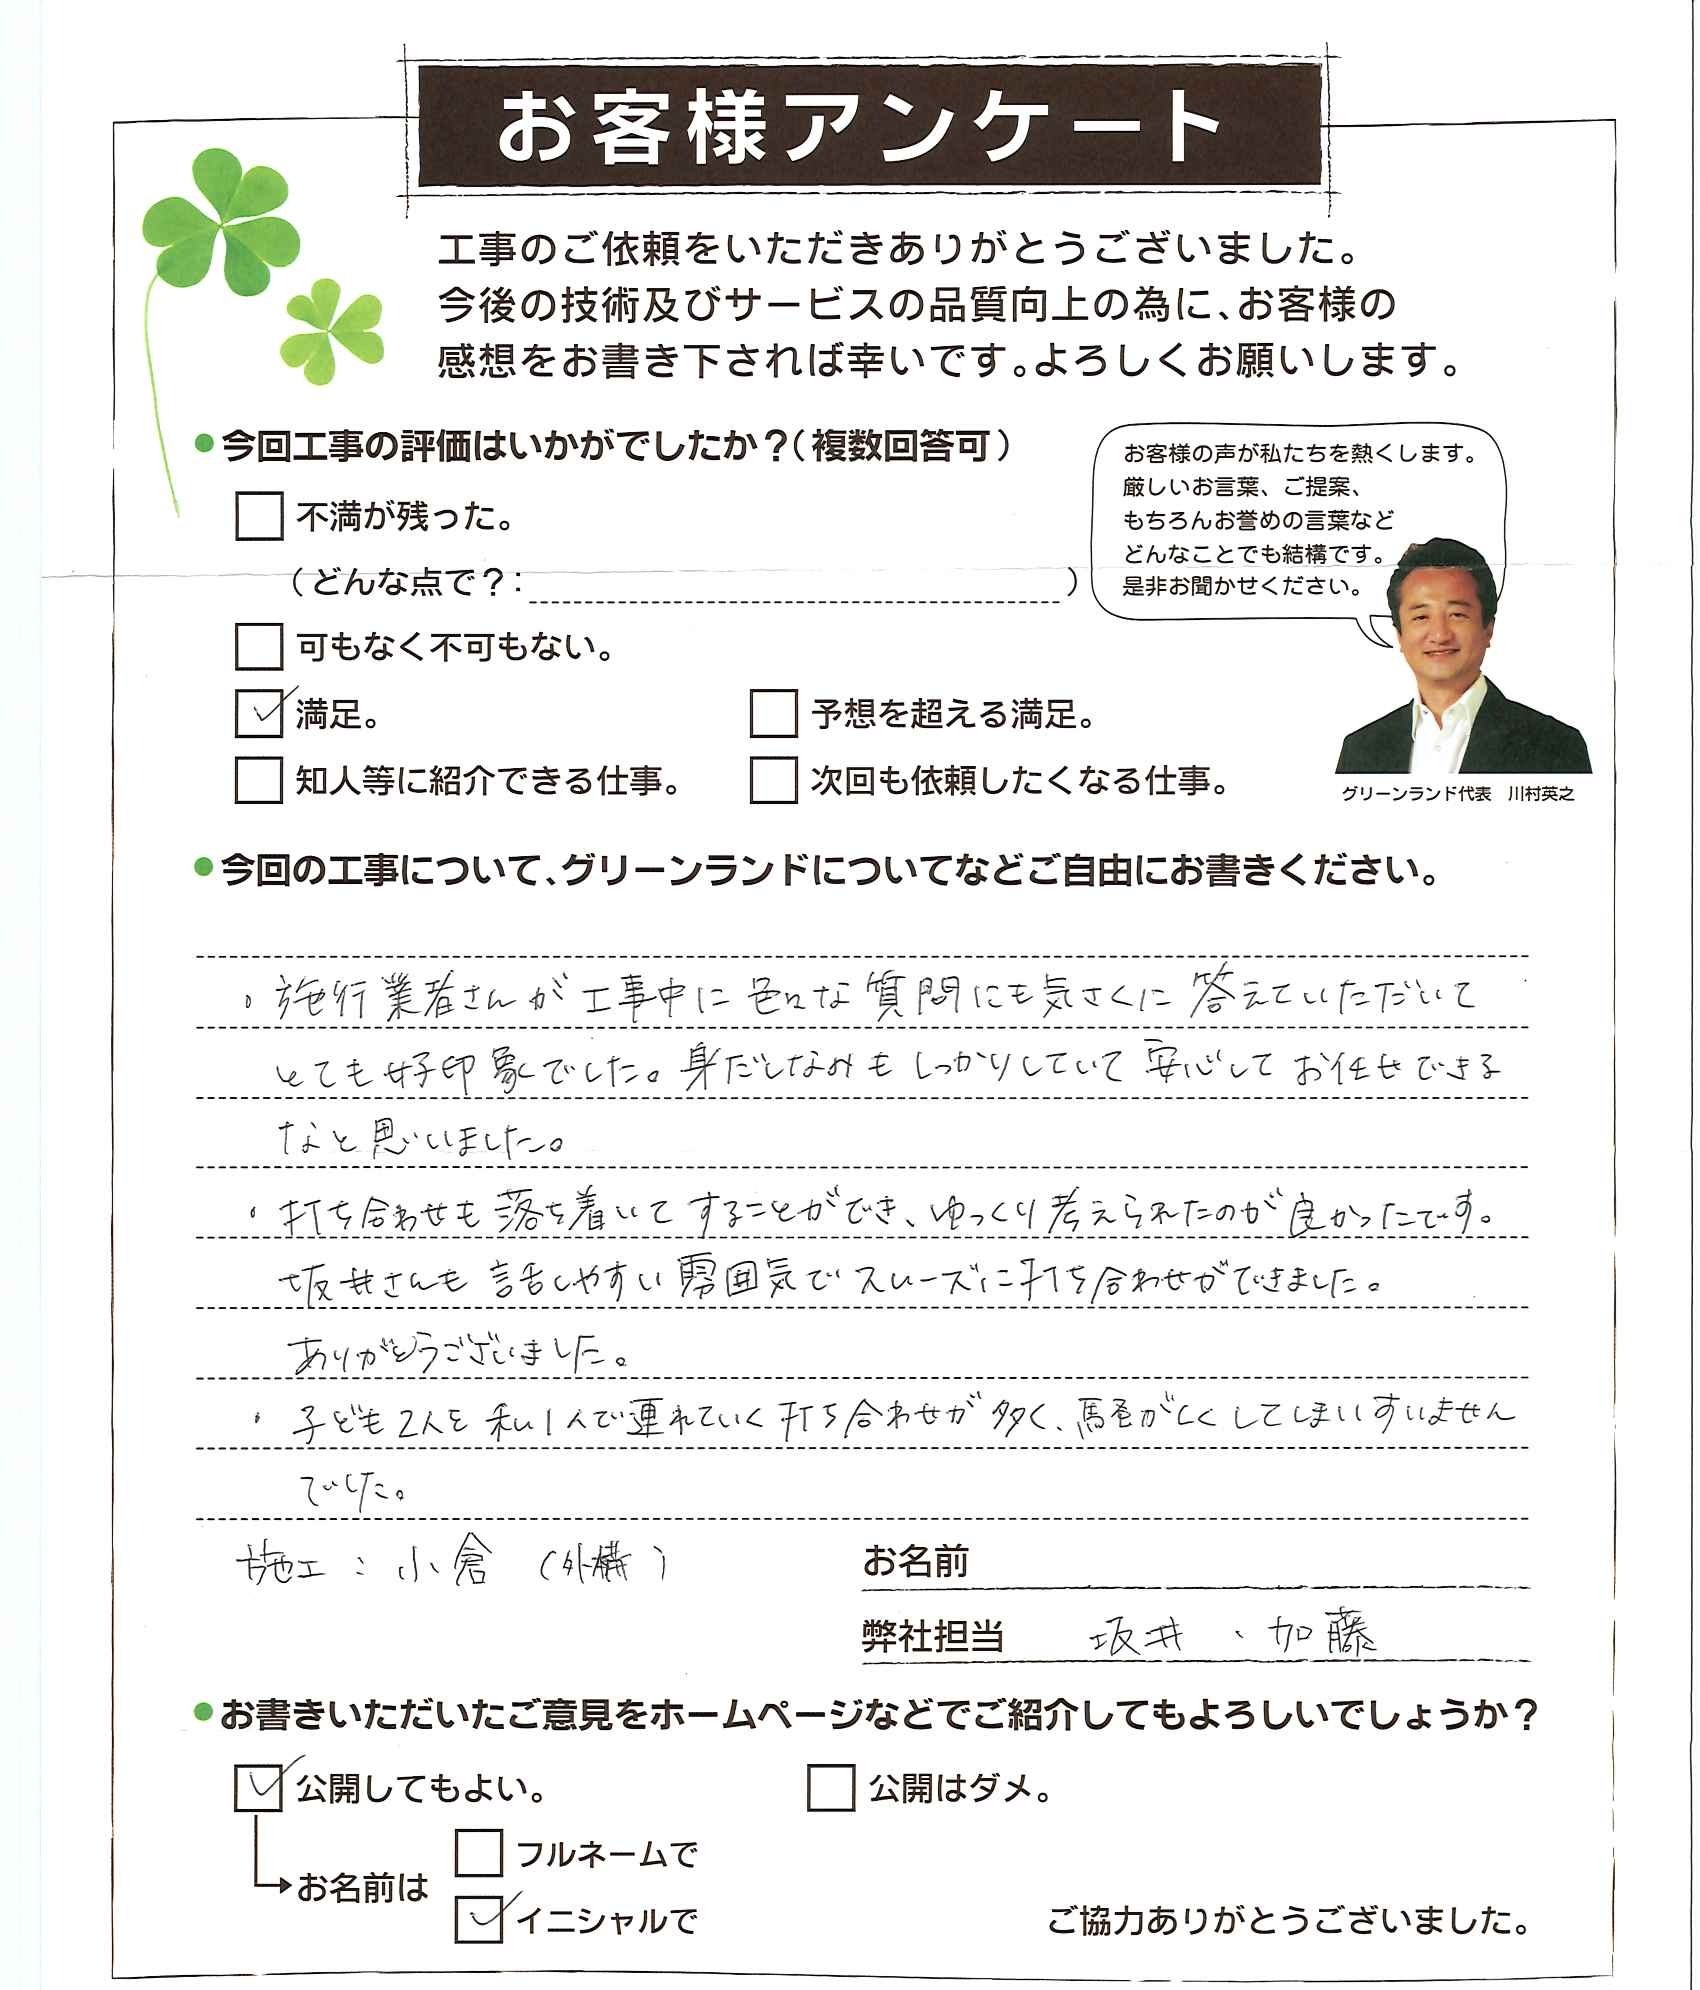 お客様アンケート
工事のご依頼をいただきありがとうございました。
今後の技術及びサービスの品質向上の為に、お客様の
感想をお書き下されば幸いです。よろしくお願いします。
●今回工事の評価はいかがでしたか？（複数回答可）
不満が残った。
（どんな点で？：　）
可もなく不可もない。
満足。
予想を超える満足。
知人等に紹介できる仕事。
次回も依頼したくなる仕事。
お客様の声が私たちを熱くします。
厳しいお言葉、ご提案、
もちろんお誉めの言葉など
どんなことでも結構です。
是非お聞かせください。
グリーンランド代表　川村英之
●今回の工事について、グリーンランドについてなどご自由にお書きください。
・施行業者さんが工事中に色々な質問にも気さくに答えていただいて
とても好印象でした。身だしなみもしっかりしていて安心してお任せできる
なと思いました。
・打ち合わせも落ち着いてすることができ、ゆっくり考えられたのが良かったです。
坂井さんも話しやすい雰囲気でスムーズに打ち合わせができました。
ありがとうございました。
・子ども2人を私1人で連れていく打ち合わせが多く、騒がしくしてしまいすいません
でした。
施工：小倉（外構）
お名前
弊社担当　坂井、加藤
●お書きいただいたご意見をホームページなどでご紹介してもよろしいでしょうか？
公開してもよい。
公開はダメ。
お名前は
フルネームで
イニシャルで
ご協力ありがとうございました。